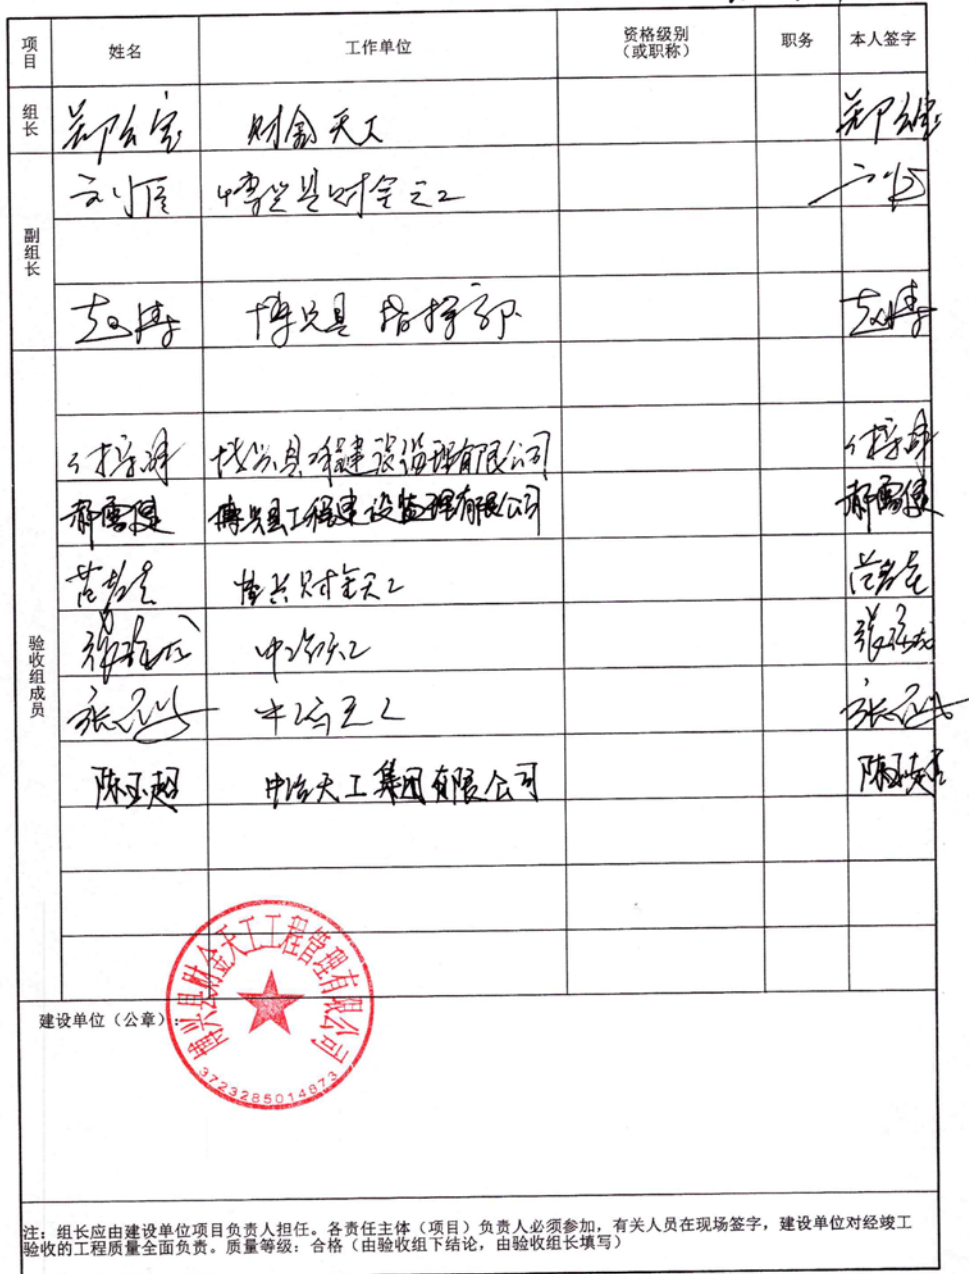 项目 姓名 工作单位 资格级别（或职称） 职务 本人签字
组长 财金天工
副组长 博兴县财金天工
赵博 博兴县 指挥部 赵博
验收组成员
博兴县工程建设监理有限公司
郝雪健 博兴县工程建设监理有限公司 郝雪健
博兴财金天工
中冶天工
中冶天工
陈玉超 中冶天工集团有限公司 陈玉超
建设单位（公章）：
博兴县财金天工工程管理有限公司
3723285014873
注：组长应由建设单位项目负责人担任。各责任主体（项目）负责人必须参加，有关人员在现场签字，建设单位对经竣工
验收的工程质量全面负责。质量等级：合格（由验收组下结论，由验收组长填写）